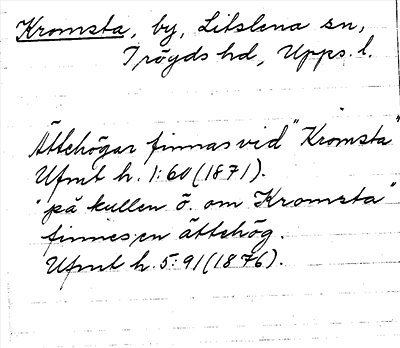 Kromsta, by, Litslena sn,
Tröyds hd, Upps. l.
Ättehögar finnas vid "Kromsta"
Ufmt h. 1:60 (1871).
"på kullen ö. om Kromsta"
finnes en ättehög.
Ufmt h. 5:91 (1876).